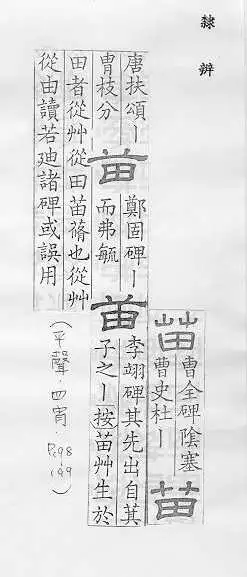 隸辨
苗
曹全碑陰塞
曹史杜丨
苗
唐扶頌丨
冑枝分
苗
鄭固碑丨
而弗毓
苗
李翊碑其先出自其
子之丨按苗艸生於
田者從艸從田苗蓨也從艸
從由讀若廸諸碑或誤用
(平聲·四宵· P.98 199)